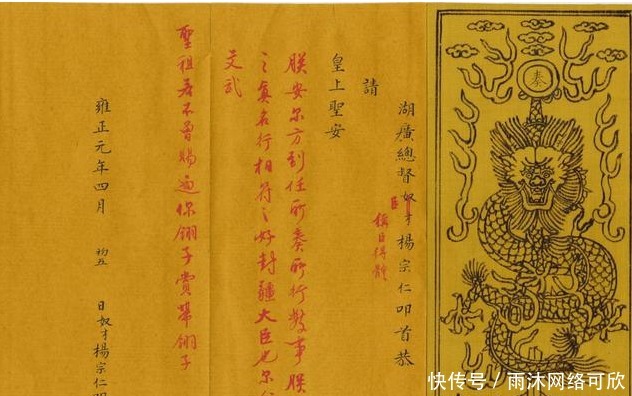 奏
湖廣總督奴才楊宗仁叩首恭
臣
稱臣得體
請
皇上聖安
朕安尔方到任所奏所行数事朕
之真名行相符之好封疆大臣也尔
文武
聖祖若不曾賜过你翎子賞帶翎子
雍正元年四月 初五 日奴才楊宗仁叩
快传号 / 雨沐网络可欣